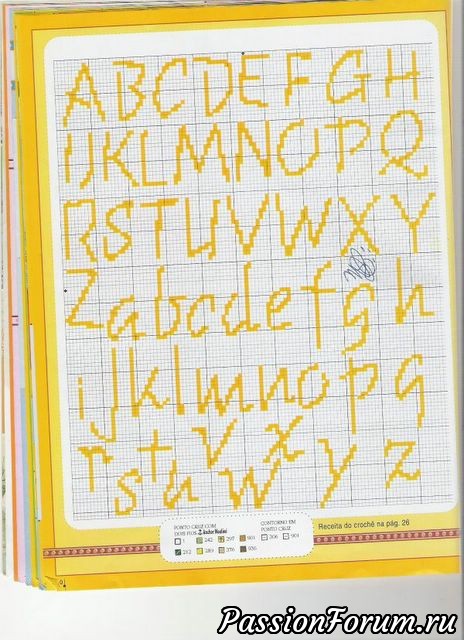 ABCDEFGH
IJKLMNOPQ
RSTUVWXY
Zabcdefgh
ijklmnopq
rstuvwxyz
PONTO CRUZ COM
DOIS FIOS Anchor Mouliné
CONTORNO EM
PONTO CRUZ
Receita do crochê na pág. 26
PassionForum.ru